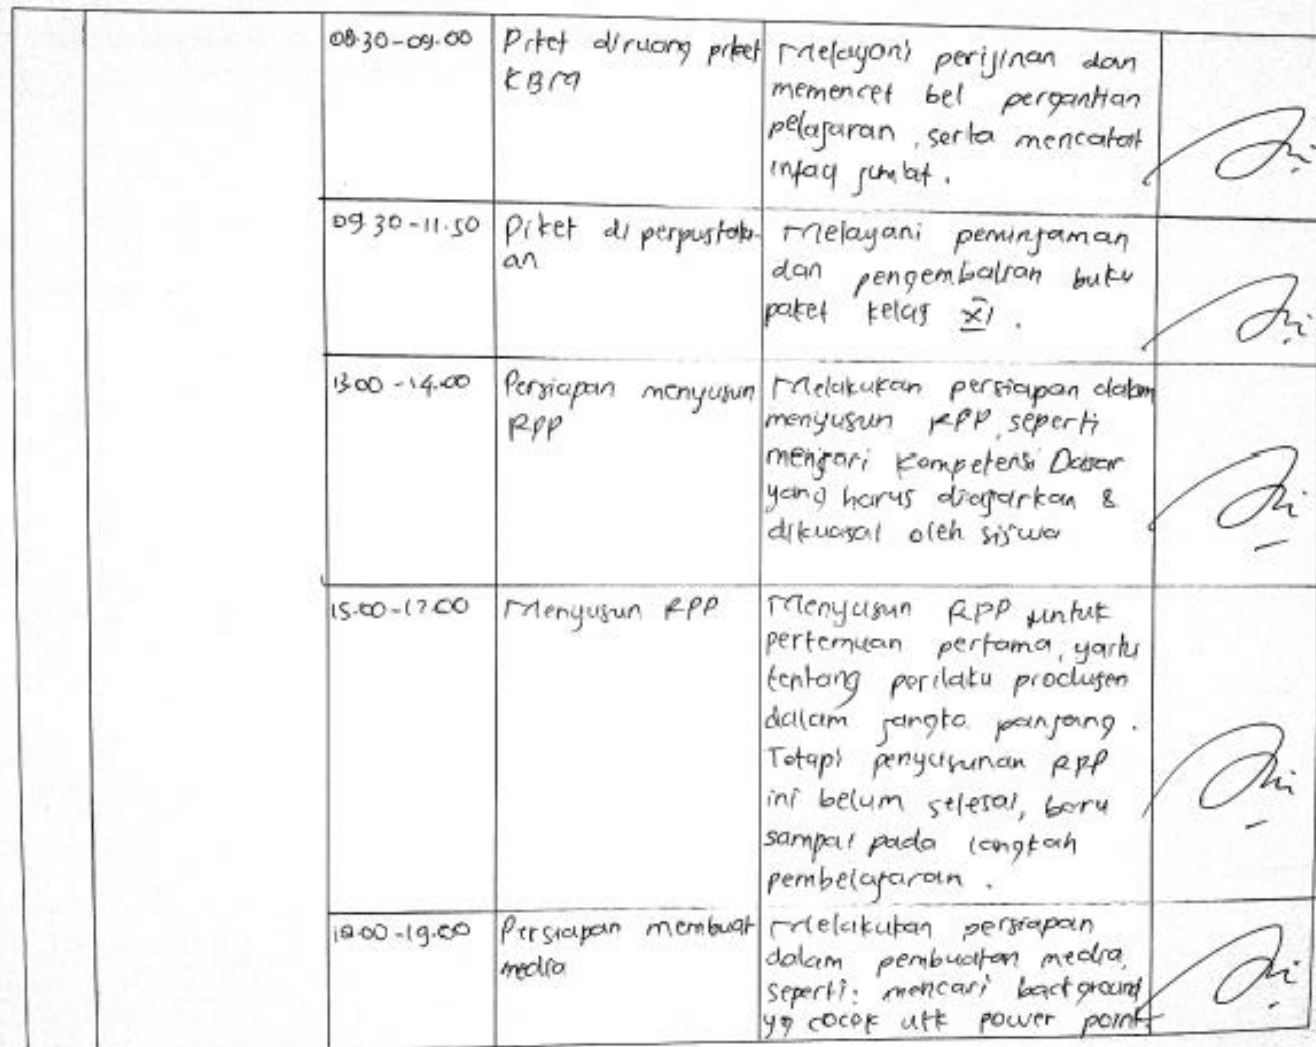 08.30-09.00
Piket diruang piket
KBM
Melayani perijinan dan
memencet bel pergantian
pelajaran, serta mencatat
infaq jumbat.
09.30-11.50
Piket di perpustaka-
an
Melayani peminjaman
dan pengembalian buku
paket kelas XI.
13.00-14.00
Persiapan menyusun
RPP
Melakukan persiapan dalam
menyusun RPP, seperti
mencari Kompetensi Dasar
yang harus diajarkan &
dikuasai oleh siswa
15.00-17.00
Menyusun RPP
Menyusun RPP untuk
pertemuan pertama, yaitu
tentang perilaku produsen
dalam jangka panjang.
Tetapi penyusunan RPP
ini belum selesai, baru
sampai pada langkah
pembelajaran.
18.00-19.00
Persiapan membuat
media
Melakukan persiapan
dalam pembuatan media,
seperti: mencari background
yg cocok utk power point